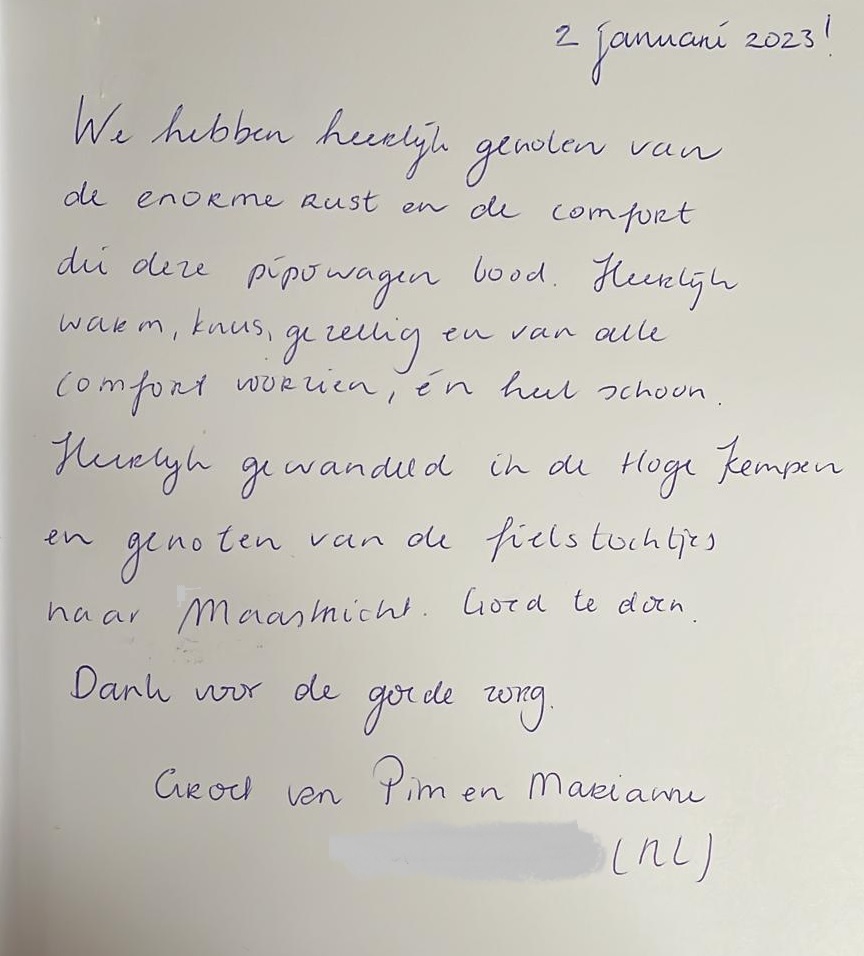 2 januari 2023!
We hebben heerlijk genoten van
de enorme rust en de comfort
die deze pipowagen bood. Heerlijk
warm, knus, gezellig en van alle
comfort voorzien, én heel schoon.
Heerlijk gewandeld in de Hoge Kempen
en genoten van de fietstochtjes
naar Maastricht. Goed te doen.
Dank voor de goede zorg.
Groet van Pim en Marianne
(NL)